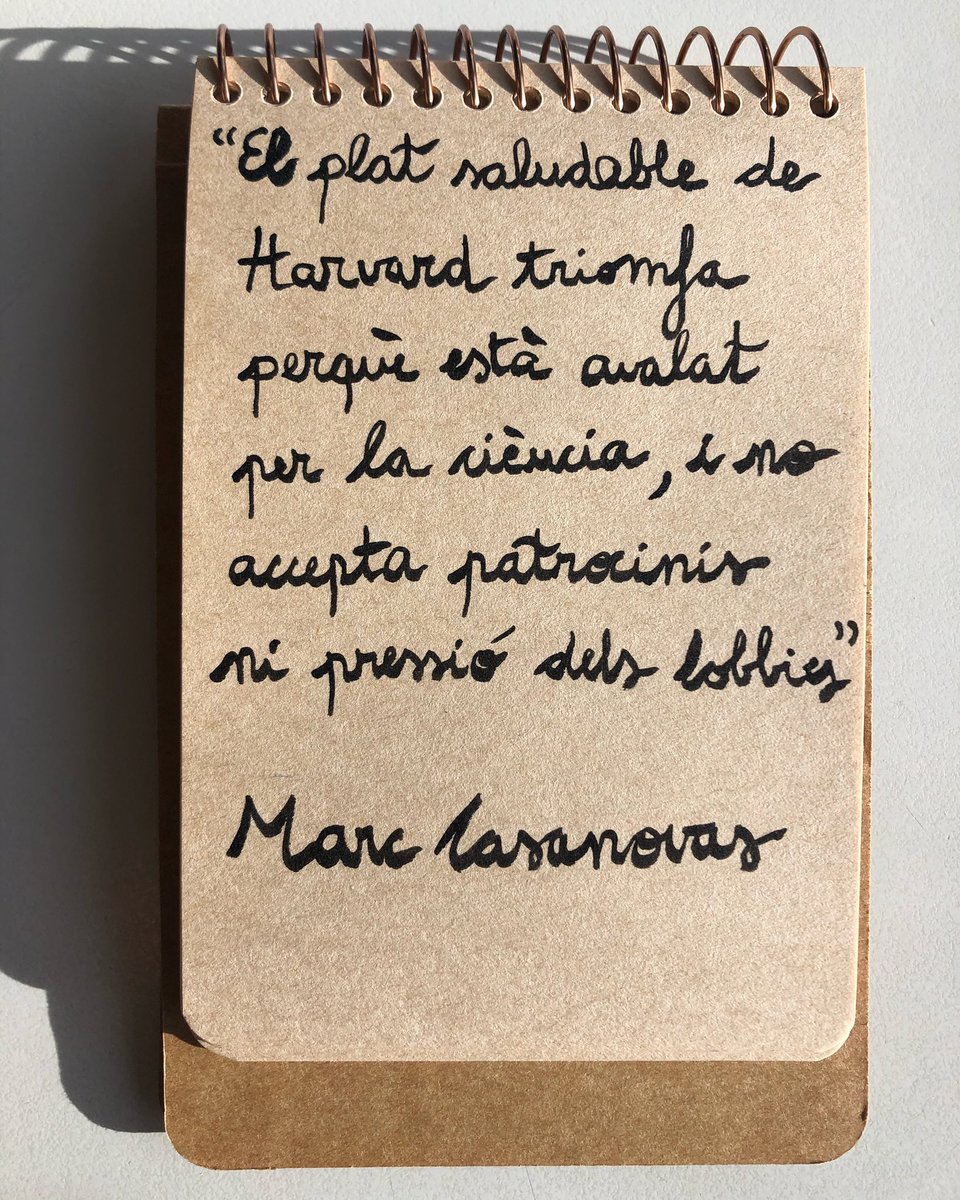 “El plat saludable de
Harvard triomfa
perquè està avalat
per la ciència, i no
accepta patrocinis
ni pressió dels lobbies”
Marc Casanovas